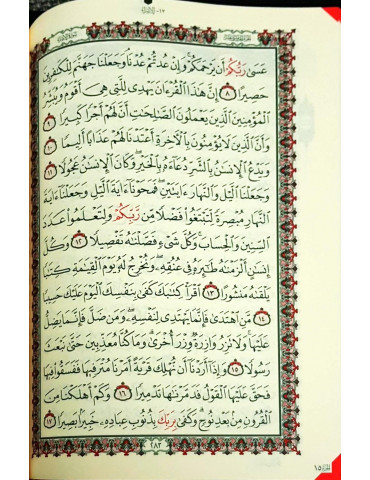 عَسَىٰ رَبُّكُمْ أَن يَرْحَمَكُمْ ۚ وَإِنْ عُدتُّمْ عُدْنَا ۘ وَجَعَلْنَا جَهَنَّمَ لِلْكَٰفِرِينَ
حَصِيرًا ٨ إِنَّ هَٰذَا ٱلْقُرْءَانَ يَهْدِى لِلَّتِى هِىَ أَقْوَمُ وَيُبَشِّرُ
ٱلْمُؤْمِنِينَ ٱلَّذِينَ يَعْمَلُونَ ٱلصَّٰلِحَٰتِ أَنَّ لَهُمْ أَجْرًا كَبِيرًا ٩
وَأَنَّ ٱلَّذِينَ لَا يُؤْمِنُونَ بِٱلْءَاخِرَةِ أَعْتَدْنَا لَهُمْ عَذَابًا أَلِيمًا ١٠
وَيَدْعُ ٱلْإِنسَٰنُ بِٱلشَّرِّ دُعَآءَهُۥ بِٱلْخَيْرِ ۖ وَكَانَ ٱلْإِنسَٰنُ عَجُولًا ١١
وَجَعَلْنَا ٱلَّيْلَ وَٱلنَّهَارَ ءَايَتَيْنِ ۖ فَمَحَوْنَآ ءَايَةَ ٱلَّيْلِ وَجَعَلْنَآ ءَايَةَ
ٱلنَّهَارِ مُبْصِرَةً لِّتَبْتَغُوا۟ فَضْلًا مِّن رَّبِّكُمْ وَلِتَعْلَمُوا۟ عَدَدَ
ٱلسِّنِينَ وَٱلْحِسَابَ ۚ وَكُلَّ شَىْءٍ فَصَّلْنَٰهُ تَفْصِيلًا ١٢ وَكُلَّ
إِنسَٰنٍ أَلْزَمْنَٰهُ طَٰٓئِرَهُۥ فِى عُنُقِهِۦ ۖ وَنُخْرِجُ لَهُۥ يَوْمَ ٱلْقِيَٰمَةِ كِتَٰبًا
يَلْقَىٰهُ مَنشُورًا ١٣ ٱقْرَأْ كِتَٰبَكَ كَفَىٰ بِنَفْسِكَ ٱلْيَوْمَ عَلَيْكَ حَسِيبًا
١٤ مَّنِ ٱهْتَدَىٰ فَإِنَّمَا يَهْتَدِى لِنَفْسِهِۦ ۖ وَمَن ضَلَّ فَإِنَّمَا يَضِلُّ
عَلَيْهَا ۚ وَلَا تَزِرُ وَازِرَةٌ وِزْرَ أُخْرَىٰ ۗ وَمَا كُنَّا مُعَذِّبِينَ حَتَّىٰ نَبْعَثَ
رَسُولًا ١٥ وَإِذَآ أَرَدْنَآ أَن نُّهْلِكَ قَرْيَةً أَمَرْنَا مُتْرَفِيهَا فَفَسَقُوا۟ فِيهَا
فَحَقَّ عَلَيْهَا ٱلْقَوْلُ فَدَمَّرْنَٰهَا تَدْمِيرًا ١٦ وَكَمْ أَهْلَكْنَا مِنَ
ٱلْقُرُونِ مِنۢ بَعْدِ نُوحٍ ۗ وَكَفَىٰ بِرَبِّكَ بِذُنُوبِ عِبَادِهِۦ خَبِيرًۢا بَصِيرًا ١٧
٢٨٣
١٥